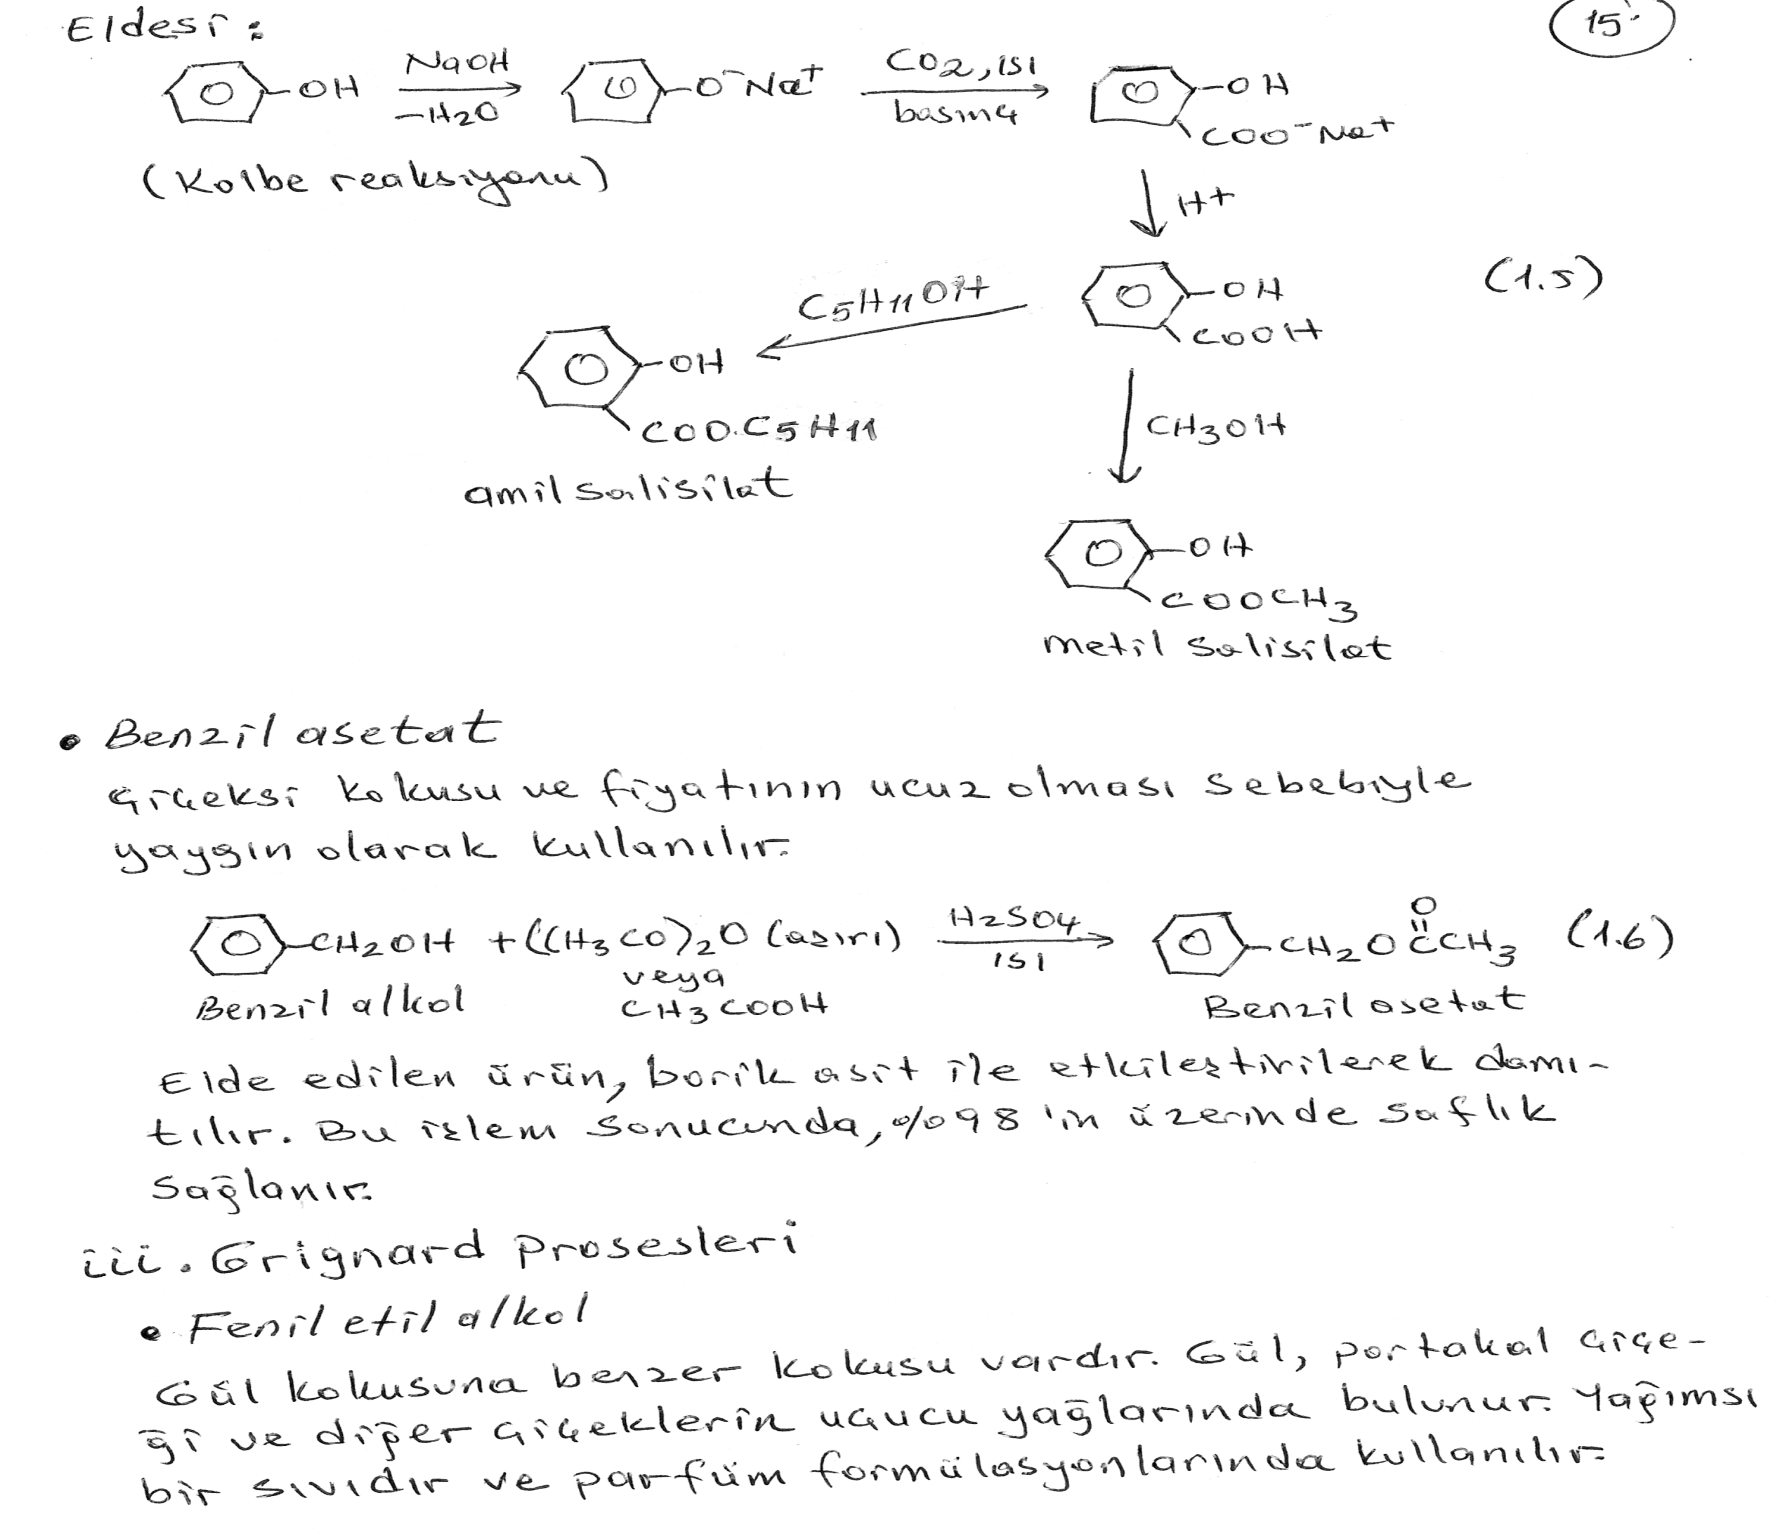 Eldesi :
15
OH NaOH -H2O O⁻Na⁺ CO2, ısı basınç OH COO⁻Na⁺
(Kolbe reaksiyonu)
H+
OH COOH (1.5)
C5H11OH
OH COO.C5H11
CH3OH
amil salisilat
OH COOCH3
metil salisilat
• Benzil asetat
Çiçeksi kokusu ve fiyatının ucuz olması sebebiyle
yaygın olarak kullanılır.
CH2OH + ((CH3CO)2O (aşırı) H2SO4 ısı CH2OCCH3 O (1.6)
veya
Benzil alkol CH3COOH Benzil asetat
Elde edilen ürün, borik asit ile etkileştirilerek damı-
tılır. Bu işlem sonucunda, %98 'in üzerinde saflık
sağlanır.
iii. Grignard Prosesleri
• Fenil etil alkol
Gül kokusuna benzer kokusu vardır. Gül, portakal çiçe-
ği ve diğer çiçeklerin uçucu yağlarında bulunur. Yağımsı
bir sıvıdır ve parfüm formülasyonlarında kullanılır.